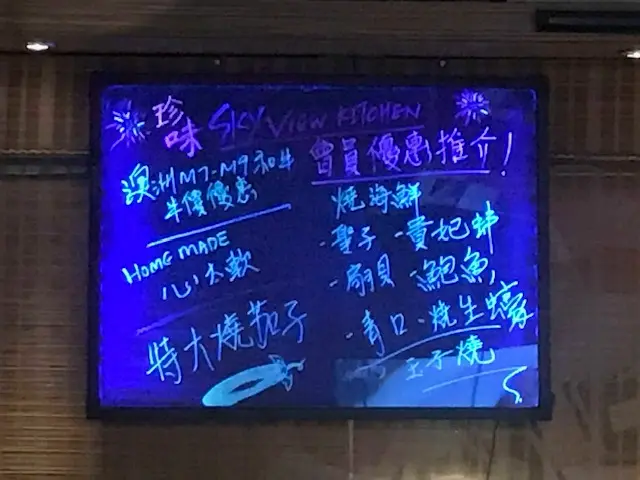 珍味 SKY VIEW KITCHEN
會員優惠推介!
澳洲M7-M9和牛
半價優惠
HOME MADE
心太軟
特大燒茄子
燒海鮮
·聖子 -貴妃蚌
·扇貝 ·鮑魚
·青口 ·燒生蠔
玉子燒